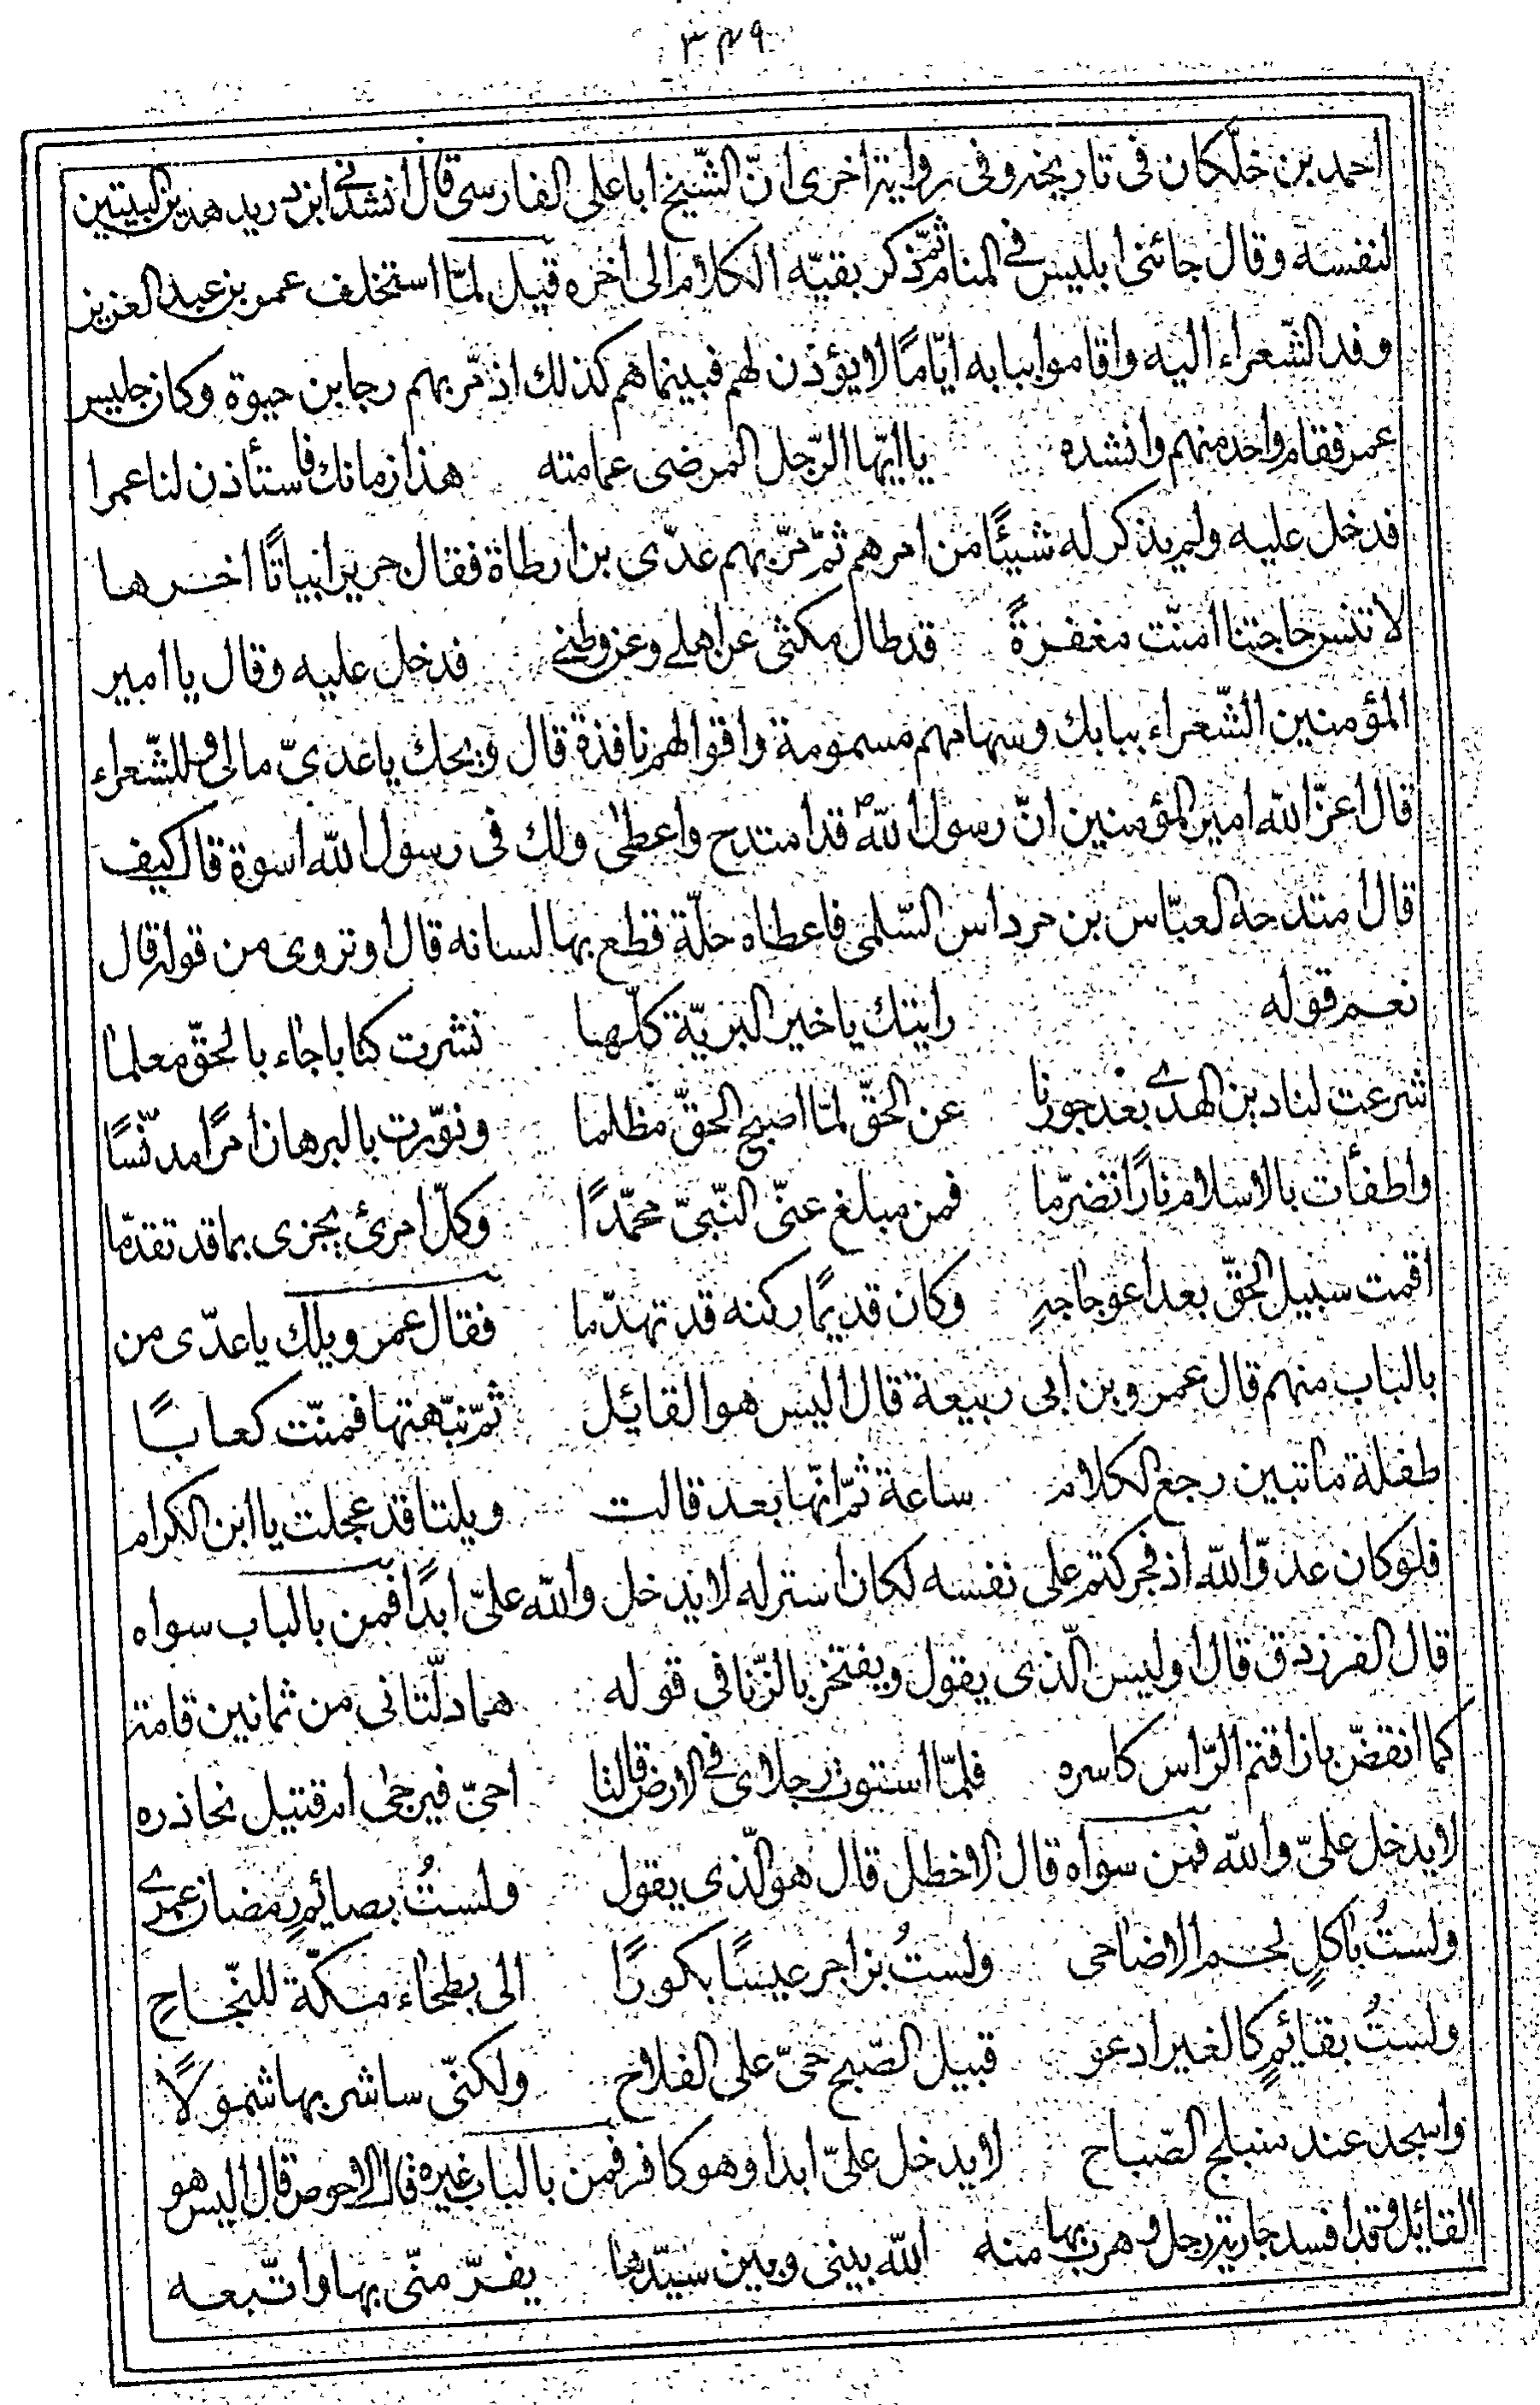 ٣٤٩
احمد بن خلّكان فى تاريخه وفى رواية اخرى انّ الشّيخ ابا على الفارسى قال انشدنى ابن دريد هذين البيتين
لنفسه وقال جائنى ابليس فى المنام ثمّ ذكر بقيّه الكلام الى اخره قيل لمّا استخلف عمر بن عبد العزيز
وفد الشّعراء اليه واقاموا ببابه ايّامًا لا يؤذن لهم فبينما هم كذلك اذ مرّ بهم رجا بن حيوة وكان جليس
عمر فقام واحد منهم وانشده يا ايّها الرّجل المرضى عمامته هذا زمانك فاستأذن لنا عمرا
فدخل عليه ولم يذكر له شيئًا من امرهم ثمّ مرّ بهم عدّى بن ارطاة فقال جرير ابياتًا اخرها
لا تنس حاجتنا امنّت مغفرةً قد طال مكثى عن اهلى وعن وطنى فدخل عليه وقال يا امير
المؤمنين الشّعراء ببابك وسهامهم مسمومة واقوالهم نافذة قال ويحك يا عدىّ مالى وللشّعراء
قال اعزّ الله امير المؤمنين انّ رسول الله ص قد امتدح واعطى ولك فى رسول الله اسوة قال كيف
قال امتدحه العبّاس بن مرداس السّلمى فاعطاه حلّة قطع بها لسانه قال اوتروى من قوله قال
نعم قوله رايتك يا خير البريّة كلّها نشرت كتابا جاء بالحقّ معلما
شرعت لنا دين الهدى بعد جورنا عن الحقّ لمّا اصبح الحقّ مظلما ونوّرت بالبرهان امرًا مدنّسًا
واطفأت بالاسلام نارًا تضرّما فمن مبلغ عنّى النّبىّ محمّدًا وكلّ امرئ يجزى بما قد تقدّما
اقمت سبيل الحقّ بعد اعوجاجه وكان قديمًا ركنه قد تهدّما فقال عمر ويلك يا عدّى من
بالباب منهم قال عمر وبن ابى ربيعة قال اليس هو القائل ثمّ نبّهتها فمنّت كعابًا
طفلة ما تبين رجع الكلام ساعة ثمّ انّها بعد قالت ويلتا قد عجلت يا ابن الكرام
فلو كان عدوّ الله اذ فجر كتم على نفسه لكان استر له لا يدخل والله علىّ ابدًا فمن بالباب سواه
قال الفرزدق قال اوليس الّذى يقول ويفتخر بالزّنا فى قوله هما دلّتانى من ثمانين قامة
كما انقضّ باز اقتم الرّاس كاسره فلمّا استوت رجلاى فى الارض قالتا احىّ فيرجى ام قتيل نحاذره
لا يدخل علىّ والله فمن سواه قال الاخطل قال هو الّذى يقول ولستُ بصائمٍ رمضان عمرى
ولستُ باكلٍ لحم الاضاحى ولستُ بزاجر عيسًا بكورًا الى بطحاء مكّة للنّجاح
ولستُ بقائمٍ كالغير ادعو قبيل الصّبح حىّ على الفلاح ولكنّى ساشربها شمولًا
واسجد عند منبلج الصّباح لا يدخل علىّ ابدا وهو كافر فمن بالباب غيره قال الاحوص قال اليس هو
القائل وقد افسد جارية رجل وهرب بها منه الله بينى وبين سيّدها يفرّ منّى بها واتّبعه